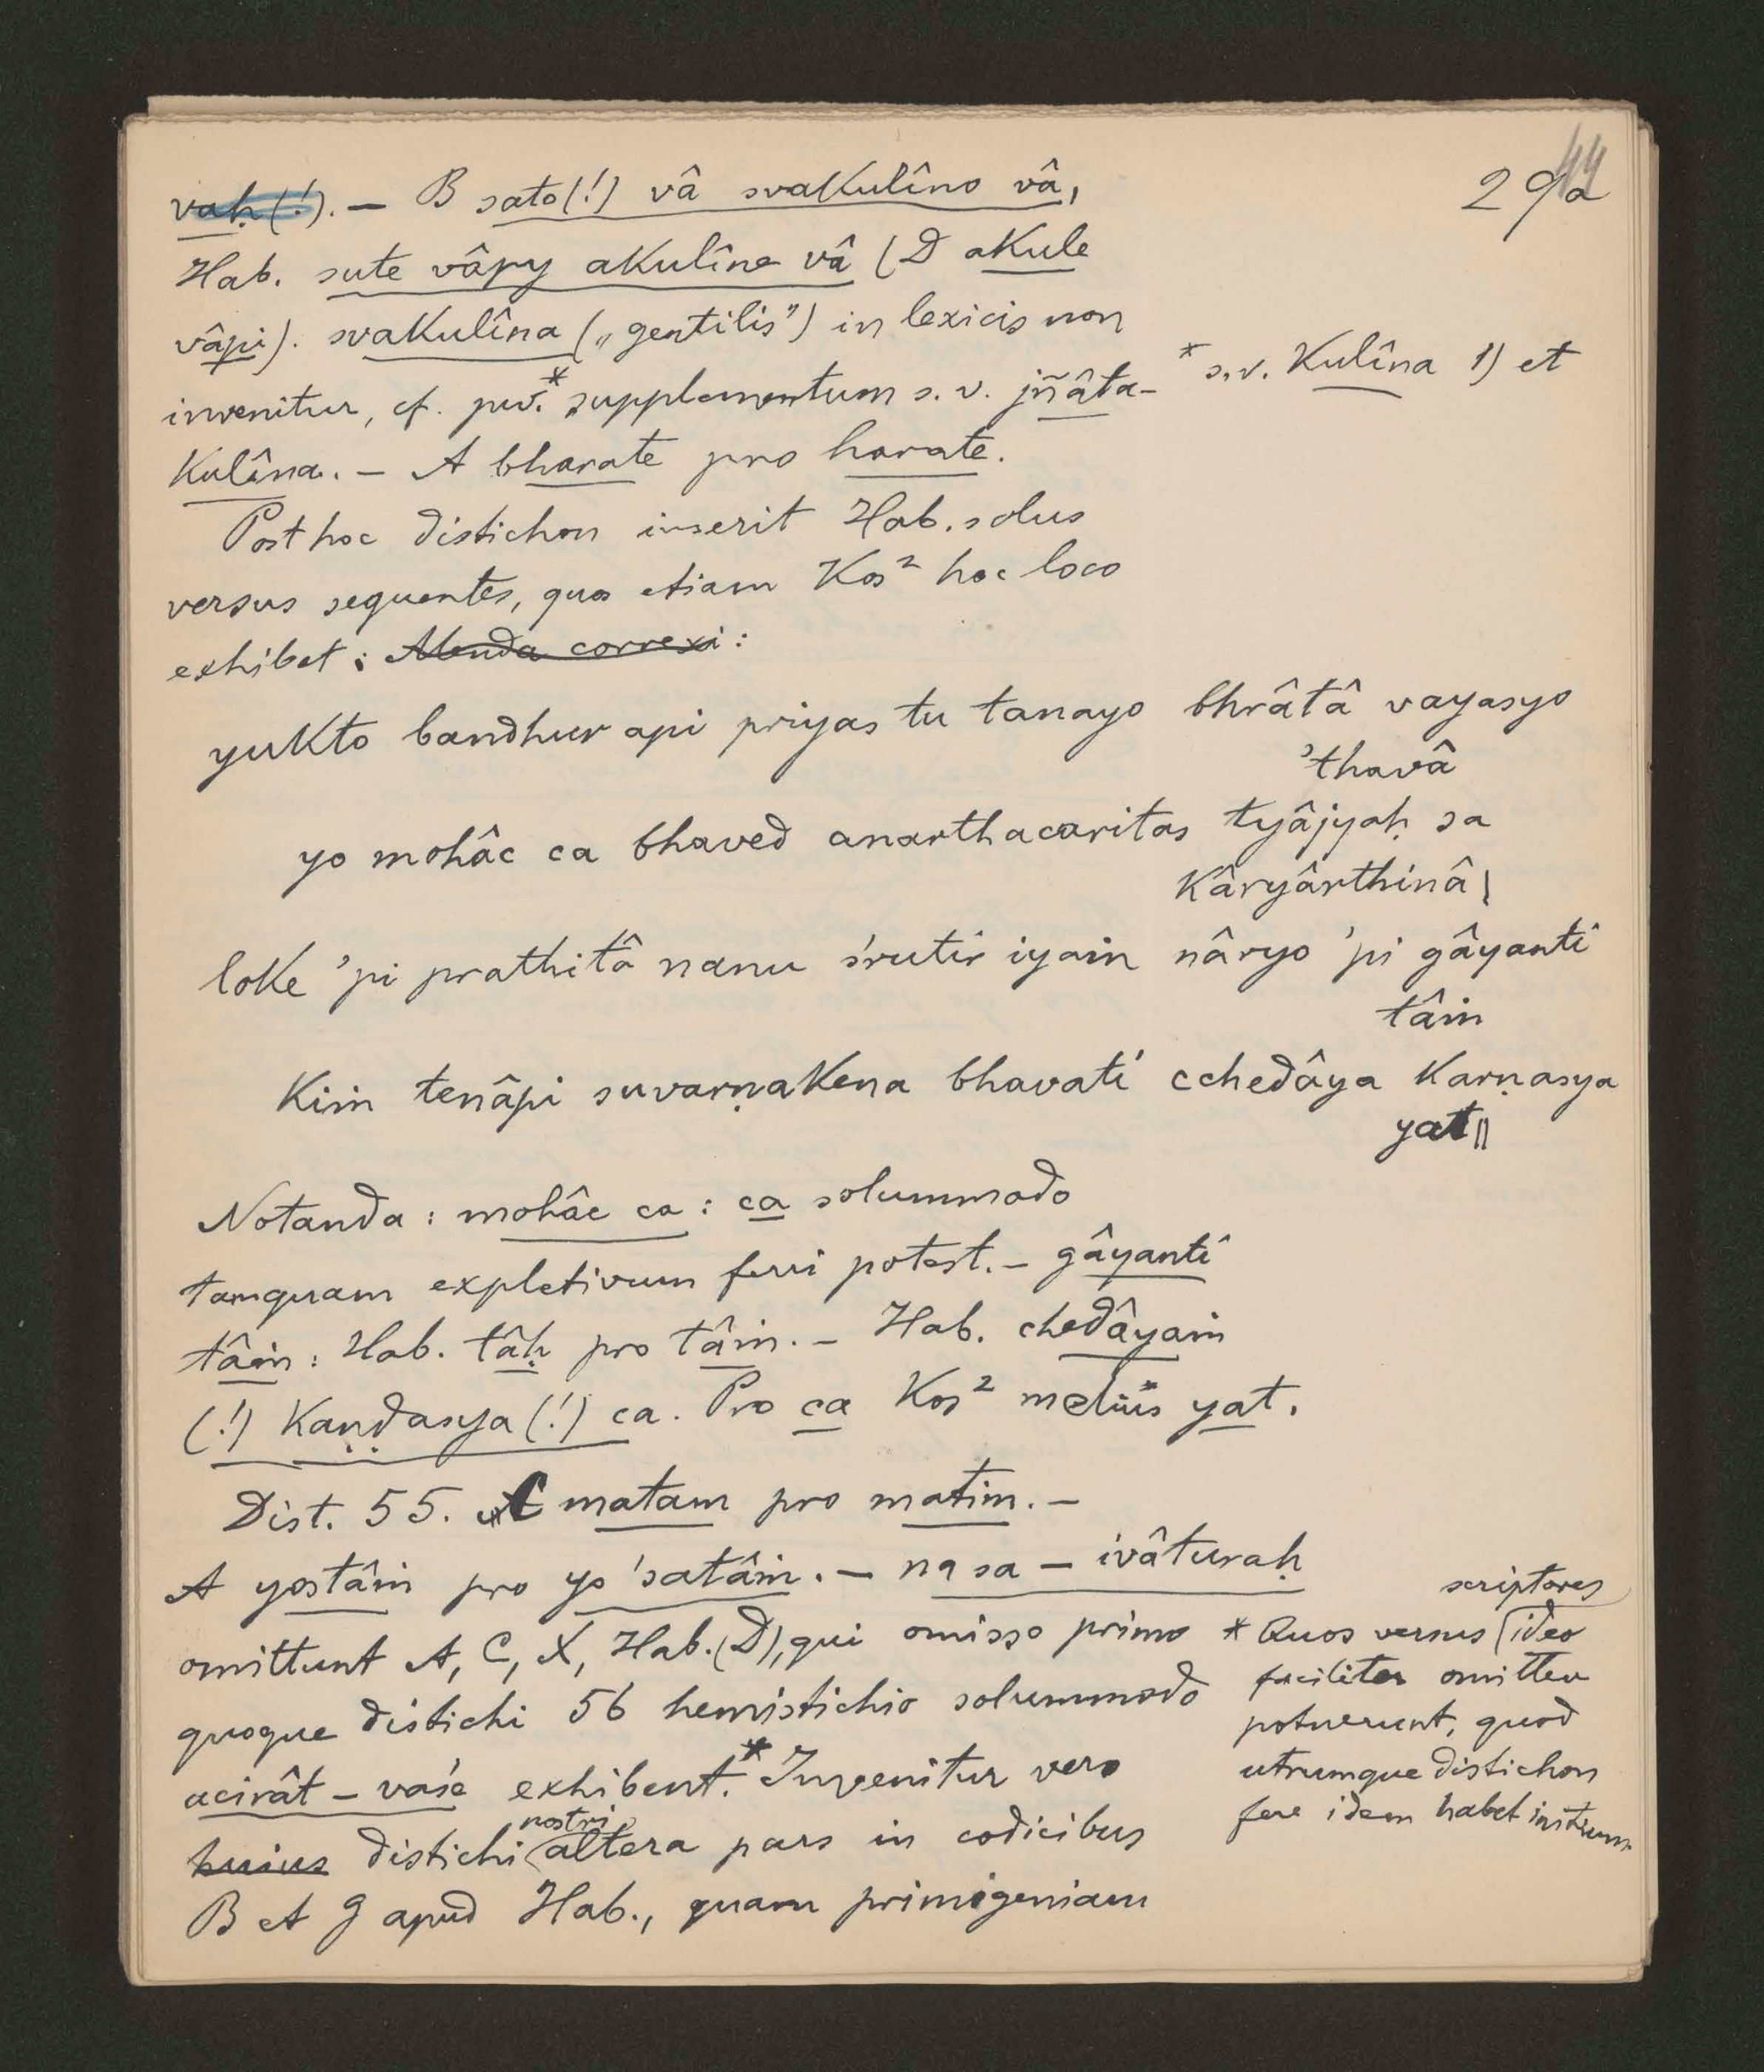 44
29a
vaḥ (!). — B sato (!) vâ svakulîno vâ,
Hab. sute vâpy akulîne vâ (D akule
vâpi). svakulîna („gentilis") in lexicis non
invenitur, cf. pw.* supplementum s. v. jñâta-
* s. v. kulîna 1) et
kulîna. — A bharate pro harate.
Post hoc distichon inserit Hab. solus
versus sequentes, quos etiam Kos² hoc loco
exhibet : Menda correxi :
yukto bandhur api priyas tu tanayo bhrâtâ vayasyo
'thavâ
yo mohâc ca bhaved anarthacaritas tyâjyaḥ sa
kâryârthinâ |
loke 'pi prathitâ nanu śrutir iyaṁ nâryo 'pi gâyanti
tâṁ
kiṁ tenâpi suvarṇakena bhavati cchedâya karṇasya
yat ||
Notanda : mohâc ca : ca solummodo
tamquam expletivum ferri potest. — gâyanti
tâṁ : Hab. tâḥ pro tâṁ. — Hab. chedâyaṁ
(!) kaṇḍasya (!) ca. Pro ca Kos² melius yat.
Dist. 55. C matam pro matim. —
A yostâṁ pro yo 'satâṁ. — na sa — ivâturaḥ
omittunt A, C, X, Hab. (D), qui omisso primo
quoque distichi 56 hemistichio solummodo
acirât — vaśe exhibent.* Invenitur vero
huius distichi nostri altera pars in codicibus
B et G apud Hab., quam primigeniam
* Quos versus scriptores ideo
faciliter omittere
potuerunt, quod
utrumque distichon
fere idem habet initium